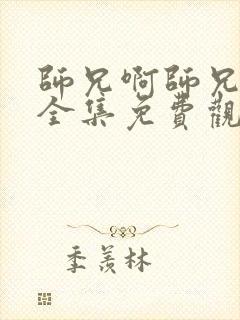 師兄啊師兄
全集免費觀
季羨林